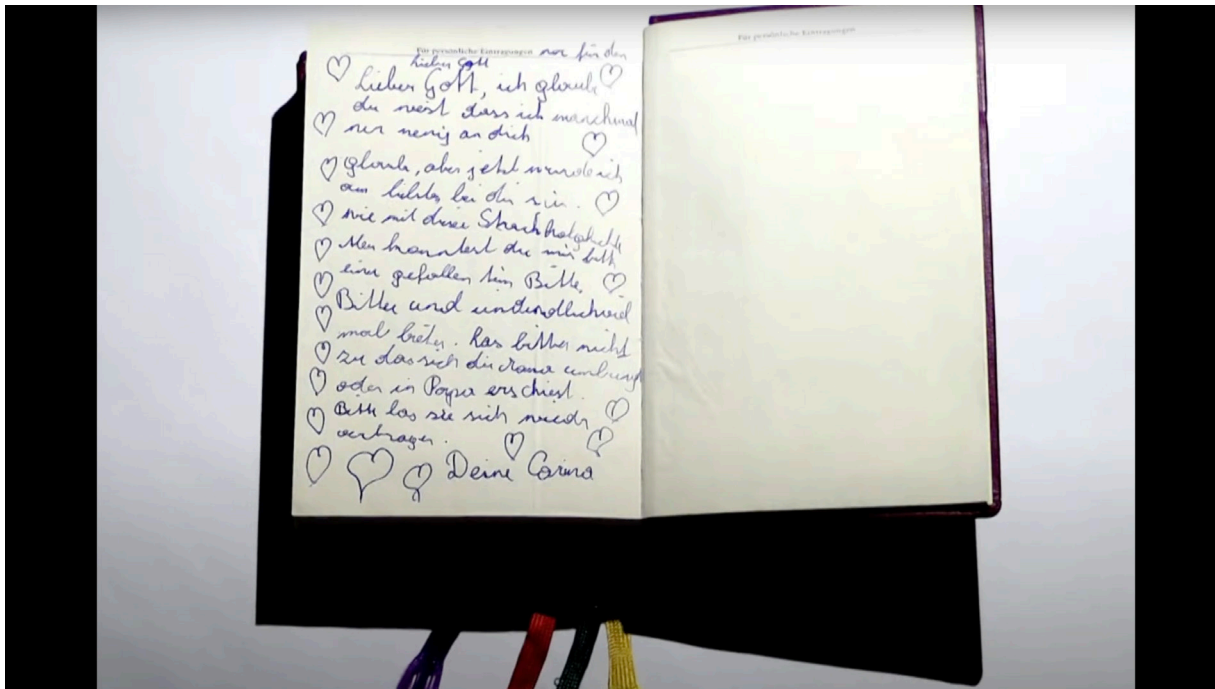 Für persönliche Eintragungen nur für den
Lieber Gott
Lieber Gott, ich glaube
du weist dass ich manchmal
nur wenig an dich
glaube, aber jetzt wurde ich
am liebsten bei dir sein.
wie mit diese
konntest du mir bitte
einen gefallen tun Bitte,
Bitte und unendlichviel
mal bitte. Las bitte nicht
zu das sich die Mama umbringt
oder in Papa erschiest.
Bitte las sie sich wieder
vertragen.
Deine Carina
Für persönliche Eintragungen